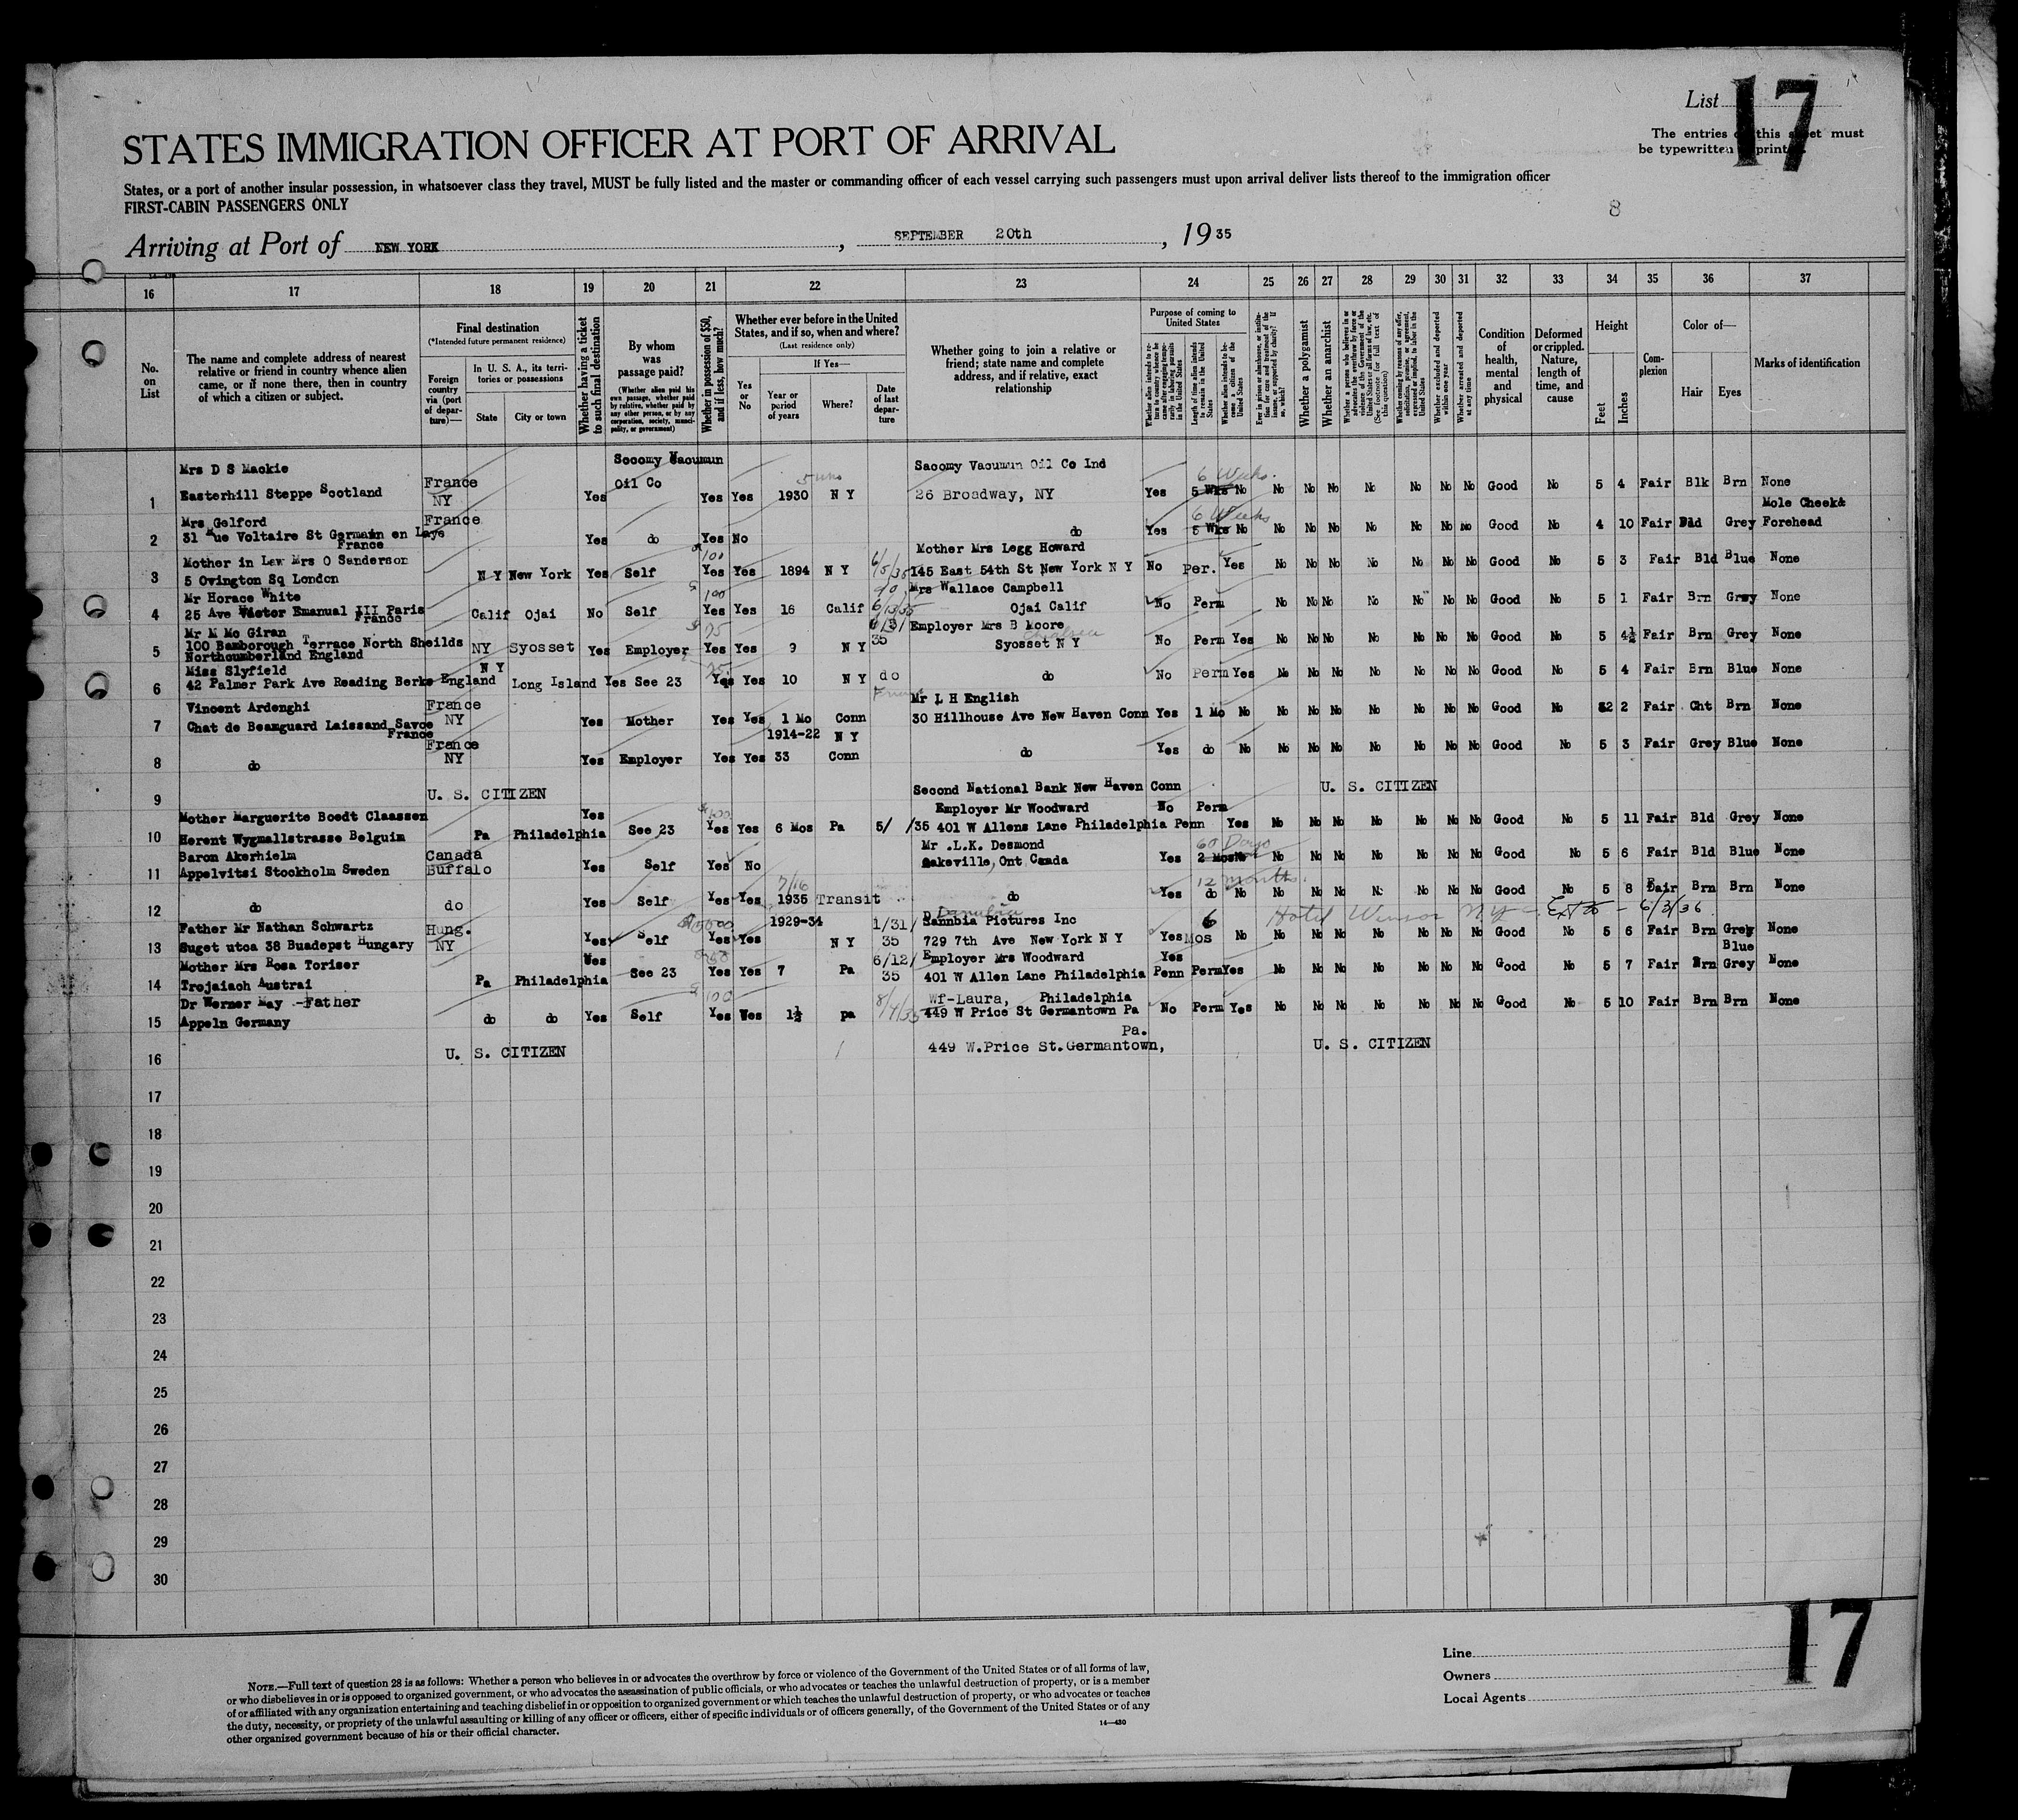 List 17
The entries on this sheet must
be typewritten or printed
STATES IMMIGRATION OFFICER AT PORT OF ARRIVAL
States, or a port of another insular possession, in whatsoever class they travel, MUST be fully listed and the master or commanding officer of each vessel carrying such passengers must upon arrival deliver lists thereof to the immigration officer
FIRST-CABIN PASSENGERS ONLY
8
Arriving at Port of NEW YORK, SEPTEMBER 20th, 1935
16 17 18 19 20 21 22 23 24 25 26 27 28 29 30 31 32 33 34 35 36 37
No. on List
The name and complete address of nearest relative or friend in country whence alien came, or if none there, then in country of which a citizen or subject.
Final destination
(*Intended future permanent residence)
Foreign country via (port of departure)—
In U. S. A., its territories or possessions
State
City or town
Whether having a ticket to such final destination
By whom was passage paid?
(Whether alien paid his own passage, whether paid by relative, whether paid by any other person, or by any corporation, society, municipality, or government)
Whether in possession of $50, and if less, how much?
Whether ever before in the United States, and if so, when and where?
(Last residence only)
If Yes—
Yes or No
Year or period of years
Where?
Date of last departure
Whether going to join a relative or friend; state name and complete address, and if relative, exact relationship
Purpose of coming to United States
Length of time alien intends to remain in the United States
Whether alien intends to become a citizen of the United States
Whether a polygamist
Whether an anarchist
(See footnote for full text of this question)
Whether excluded and deported within one year
Whether arrested and deported at any time
Condition of health, mental and physical
Deformed or crippled. Nature, length of time, and cause
Height
Feet
Inches
Complexion
Color of—
Hair
Eyes
Marks of identification
Mrs D S Mackie Socomy Vacumun Sacomy Vacumun Oil Co Ind 6 Weeks
1 Easterhill Steppe Scotland France NY Yes Oil Co Yes Yes 1930 N Y 26 Broadway, NY Yes 5 Wks No No No No No No No No Good No 5 4 Fair Blk Brn None
Mrs Gelford France 6 Weeks Mole Cheek&
2 31 Rue Voltaire St Germain en Laye France Yes do Yes No do Yes 5 Wks No No No No No No No No Good No 4 10 Fair Bld Grey Forehead
Mother in Law Mrs O Sanderson 100 Mother Mrs Legg Howard
3 5 Ovington Sq London N Y New York Yes Self Yes Yes 1894 N Y 6/5/35 145 East 54th St New York N Y No Per. Yes No No No No No No No Good No 5 3 Fair Bld Blue None
Mr Horace White 100 Mrs Wallace Campbell
4 25 Ave Victor Emanual III Paris France Calif Ojai No Self Yes Yes 16 Calif 6/13/35 Ojai Calif No Perm No No No No No No No Good No 5 1 Fair Brn Grey None
Mr M Mc Giran 75 Employer Mrs B Moore
5 100 Bamborough Terrace North Sheilds Northcumberland England NY Syosset Yes Employer Yes Yes 9 N Y 35 Syosset N Y No Perm Yes No No No No No No No Good No 5 4½ Fair Brn Grey None
Miss Slyfield N Y 75
6 42 Palmer Park Ave Reading Berks England Long Island Yes See 23 Yes Yes 10 N Y do do No Perm Yes No No No No No No No Good No 5 4 Fair Brn Blue None
Vincent Ardenghi France Mr L H English
7 Chat de Beamguard Laissand Savoe France NY Yes Mother Yes Yes 1 Mo Conn 30 Hillhouse Ave New Haven Conn Yes 1 Mo No No No No No No No No Good No 2 Fair Cht Brn None
France 1914-22 N Y
8 do NY Yes Employer Yes Yes 33 Conn do Yes do No No No No No No No No Good No 5 3 Fair Grey Blue None
9 U. S. CITIZEN Second National Bank New Haven Conn U. S. CITIZEN
Mother Marguerite Boedt Claassen Yes 100 Employer Mr Woodward No Perm
10 Herent Wygmallstrasse Belguim Pa Philadelphia See 23 Yes Yes 6 Mos Pa 5/ /35 401 W Allens Lane Philadelphia Penn Yes No No No No No No No Good No 5 11 Fair Bld Grey None
Baron Akerhielm Canada Mr .L.K. Desmond 60 Days
11 Appelvitsi Stockholm Sweden Buffalo Yes Self Yes No Oakeville, Ont Canada Yes 2 Mos No No No No No No No No Good No 5 6 Fair Bld Blue None
7/16 12 months
12 do do Yes Self Yes Yes 1935 Transit do Yes do No No No No No No No No Good No 5 8 Fair Brn Brn None
Father Mr Nathan Schwartz Hung. 1929-34 1/31/ Danubia Pictures Inc 6 Hotel Winsor N.Y.C. Ext to - 6/3/36
13 Suget utca 38 Buadepst Hungary NY Yes Self Yes Yes N Y 35 729 7th Ave New York N Y Yes Mos No No No No No No No No Good No 5 6 Fair Brn Grey None
Mother Mrs Rosa Toriser Yes 6/12/ Employer Mrs Woodward Yes Blue
14 Trojaiach Austrai Pa Philadelphia See 23 Yes Yes 7 Pa 35 401 W Allen Lane Philadelphia Penn Perm Yes No No No No No No No Good No 5 7 Fair Brn Grey None
Dr Werner May -Father 100 Wf-Laura, Philadelphia
15 Appeln Germany do do Yes Self Yes Yes 1½ pa 8/4/35 449 W Price St Germantown Pa No Perm Yes No No No No No No No Good No 5 10 Fair Brn Brn None
Pa.
16 U. S. CITIZEN 449 W.Price St.Germantown, U. S. CITIZEN
17
18
19
20
21
22
23
24
25
26
27
28
29
30
17
Line
Owners
Local Agents
NOTE.—Full text of question 28 is as follows: Whether a person who believes in or advocates the overthrow by force or violence of the Government of the United States or of all forms of law,
or who disbelieves in or is opposed to organized government, or who advocates the assassination of public officials, or who advocates or teaches the unlawful destruction of property, or is a member
of or affiliated with any organization entertaining and teaching disbelief in or opposition to organized government or which teaches the unlawful destruction of property, or who advocates or teaches
the duty, necessity, or propriety of the unlawful assaulting or killing of any officer or officers, either of specific individuals or of officers generally, of the Government of the United States or of any
other organized government because of his or their official character.
14—430